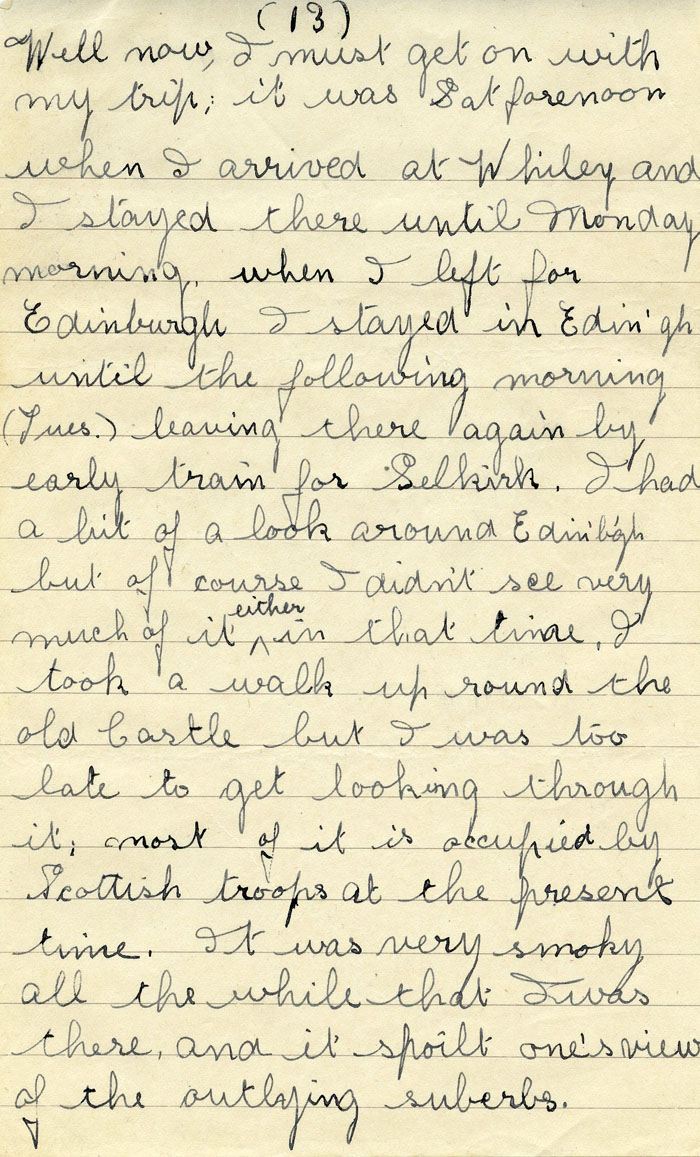 (13)
Well now, I must get on with
my trip; it was Sat forenoon
when I arrived at Whiley and
I stayed there until Monday
morning, when I left for
Edinburgh I stayed in Edin'gh
until the following morning
(Tues.) leaving there again by
early train for Selkirk. I had
a bit of a look around Edin'b'gh
but of course I didn't see very
much of it either in that time, I
took a walk up round the
old Castle but I was too
late to get looking through
it; most of it is occupied by
Scottish troops at the present
time. It was very smoky
all the while that I was
there, and it spoilt one's view
of the outlying suberbs.